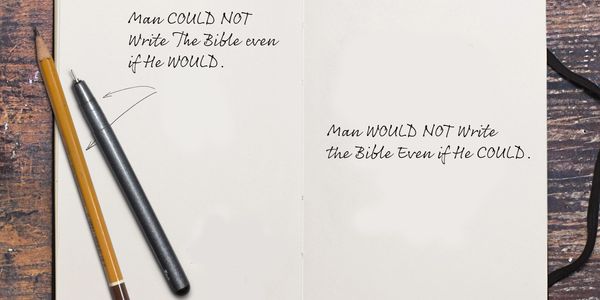 Man COULD NOT
Write The Bible even
if He WOULD.
Man WOULD NOT Write
the Bible Even if He COULD.